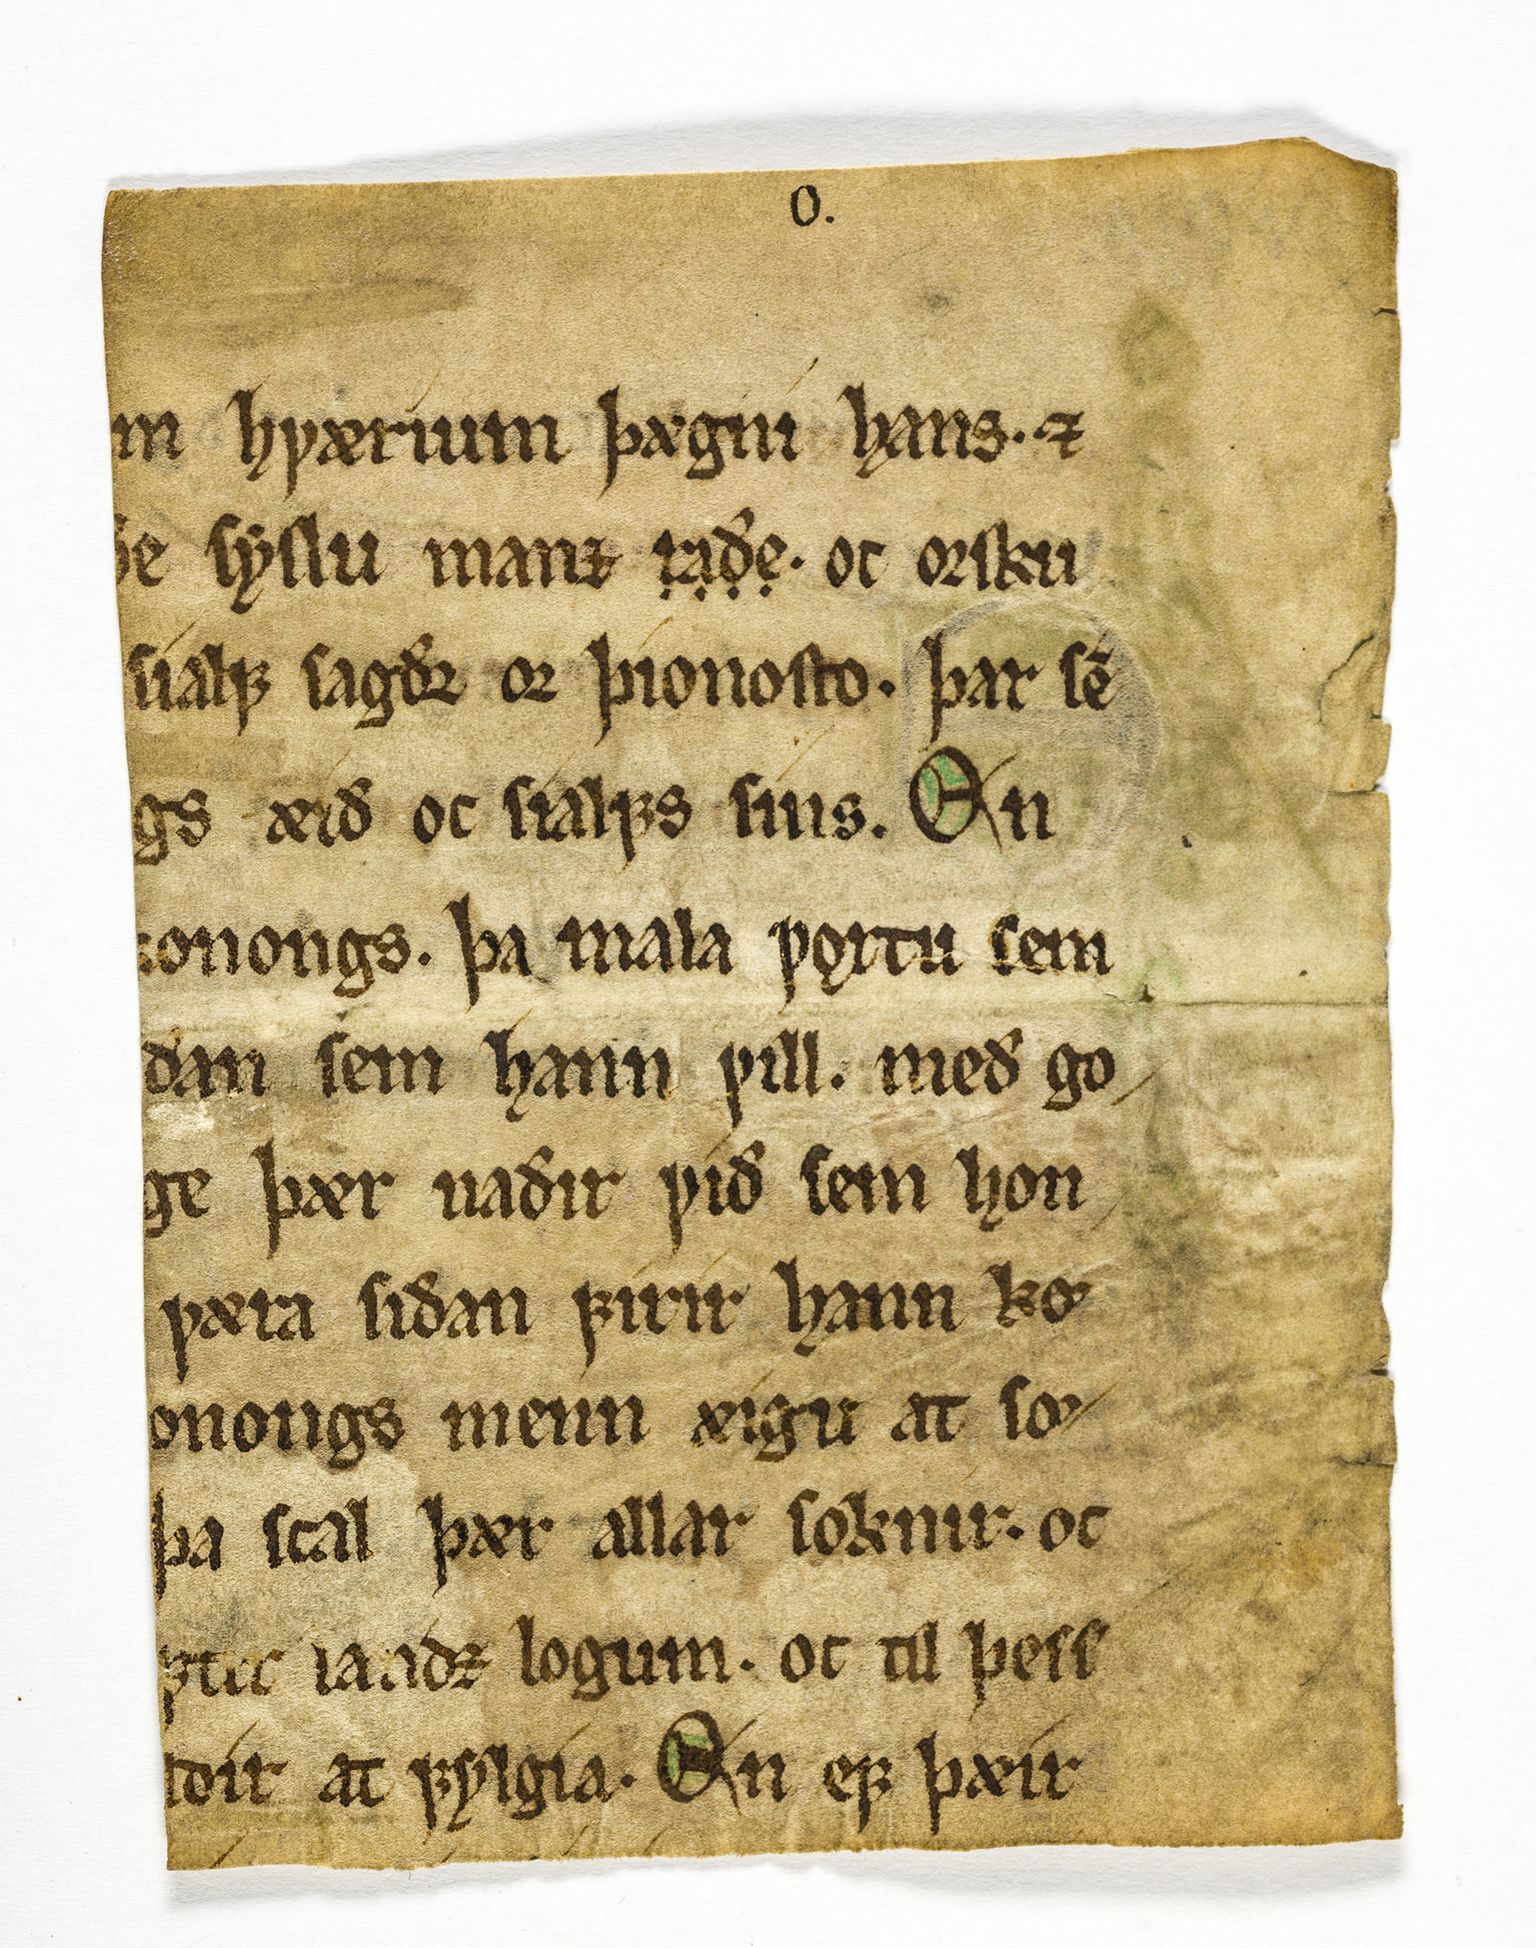 O.
m hꝩærium þægni hans. ⁊
ðe sẏslu manz raðe. oc orsku
sialꝼ sagðr or þionosto. þar se̅
gs æið oc sialꝼs sins. En
konongs. þa mala ꝩortu sem
ðan sem hann ꝩill. með go
ge þær uaðir ꝩið sem hon
ꝩæra siðan ꝼirir hann ko
onongs menn æigu at so
þa scal þær allar soknir. oc
ꝼtir landz logum. oc til þess
ldir at ꝼylgia. En eꝼ þæir